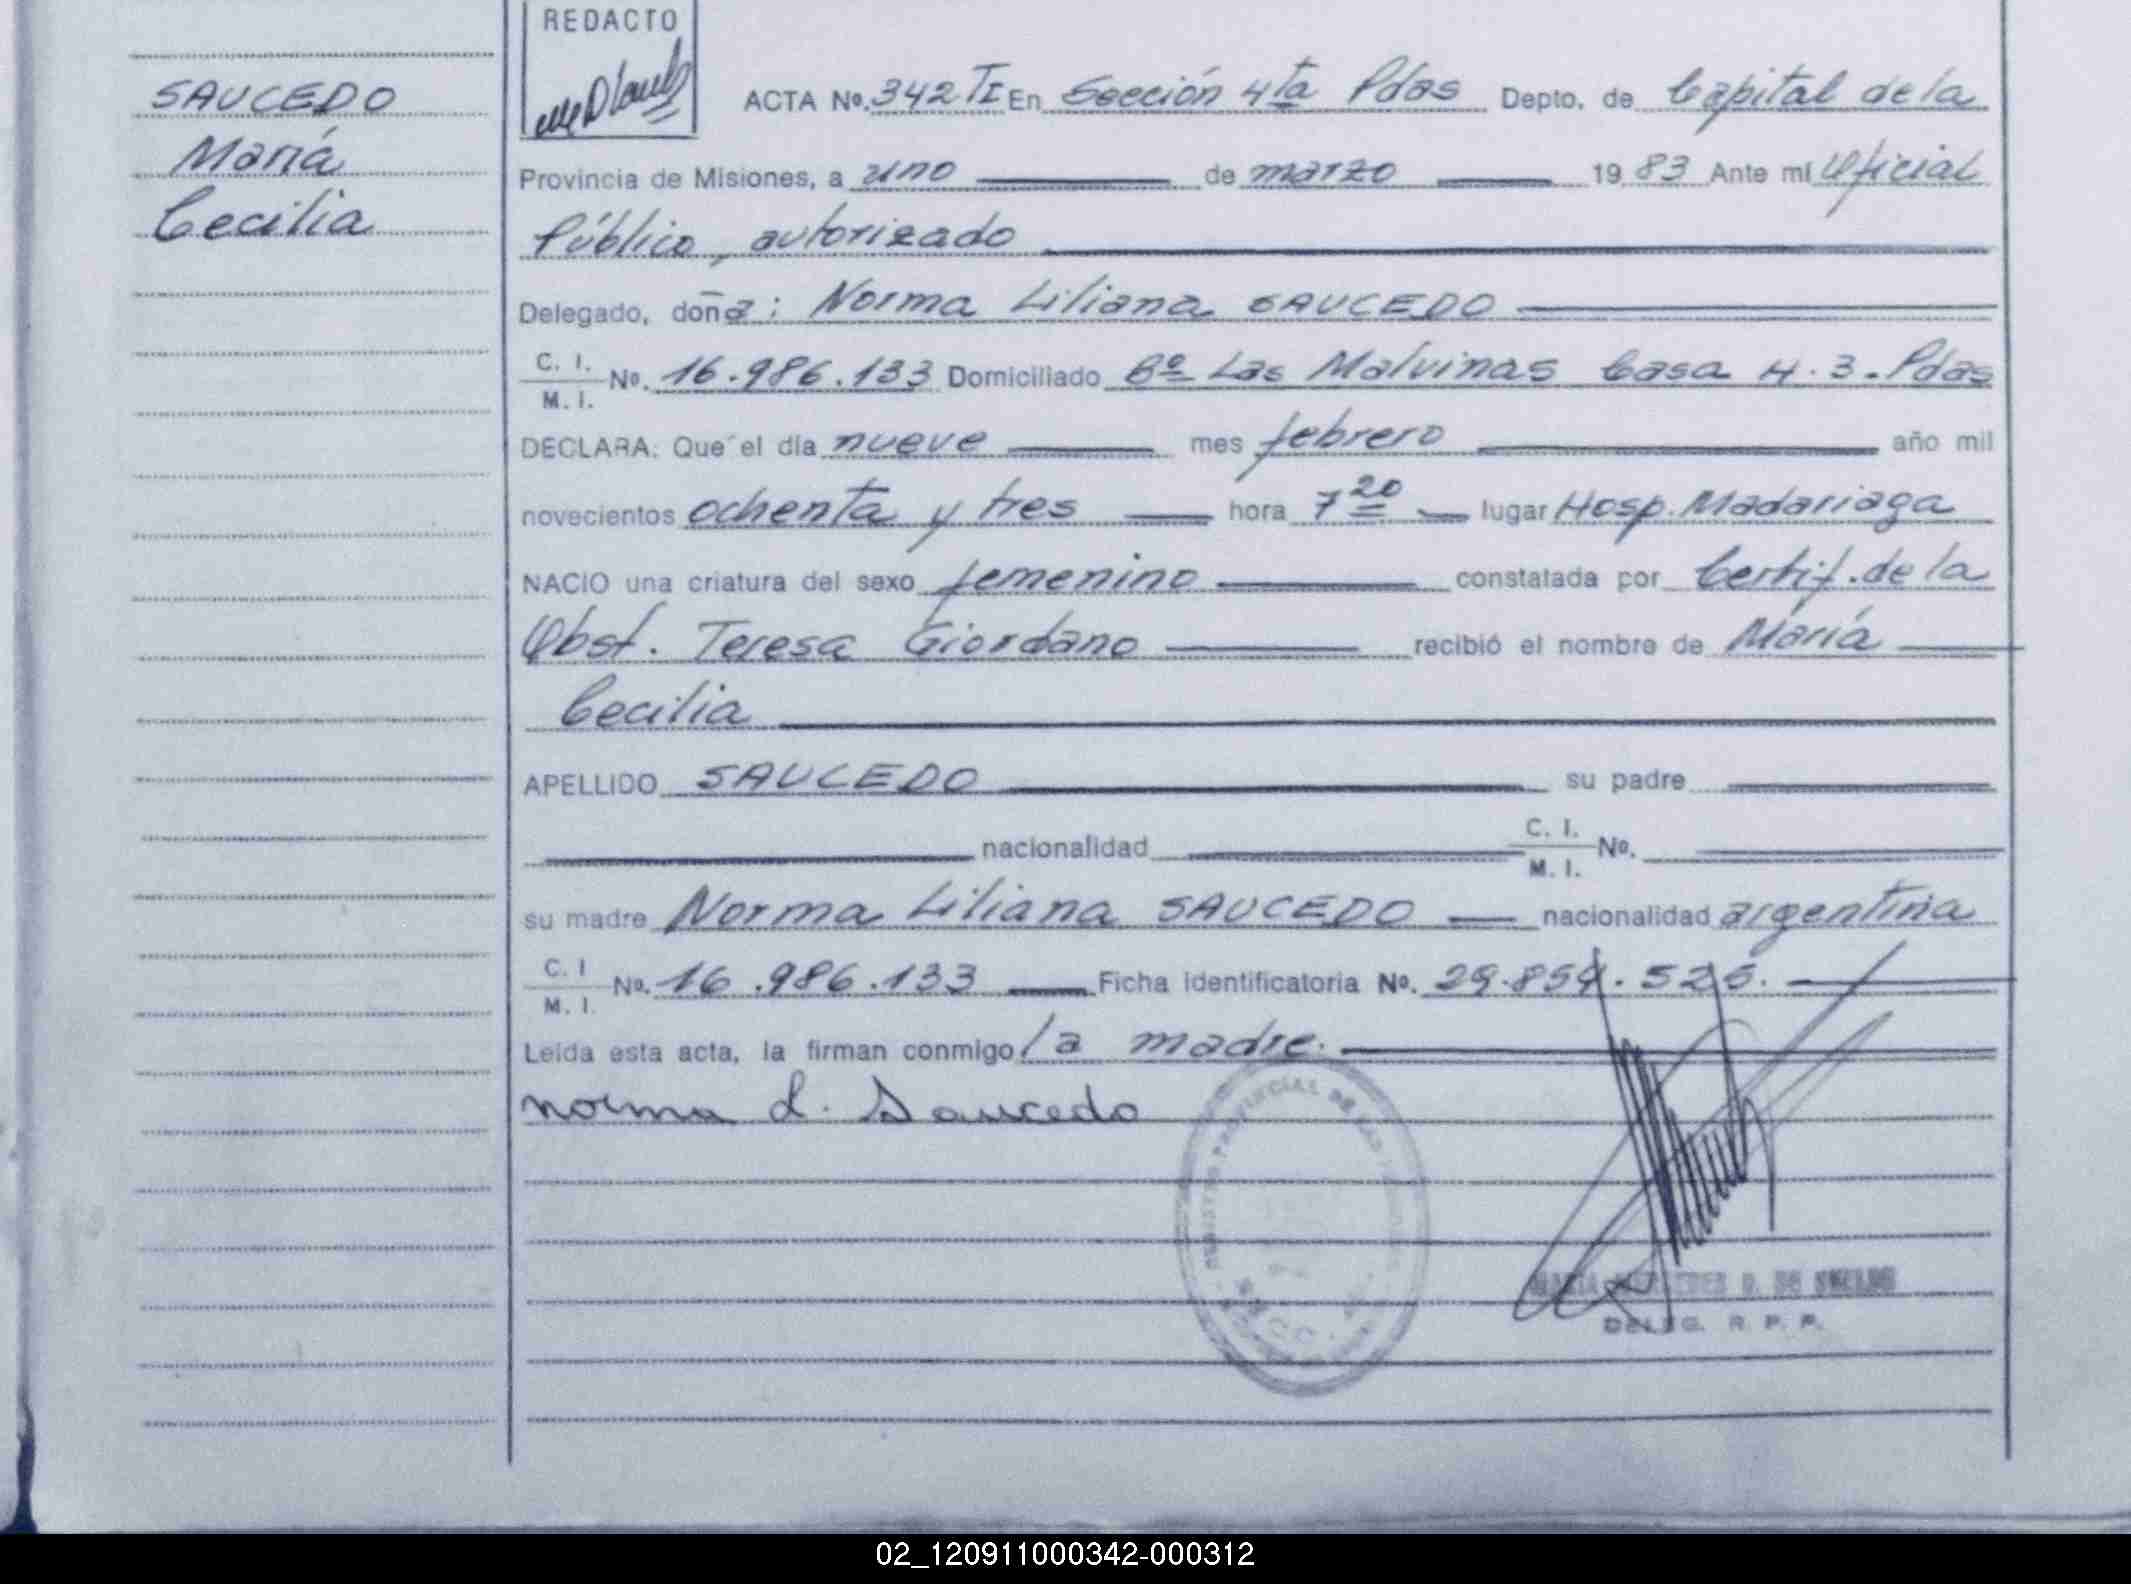 REDACTO
SAUCEDO
María
Cecilia
ACTA Nº. 342 TI En Sección 4ta Pdas Depto. de Capital de la
Provincia de Misiones, a uno de marzo 19 83 Ante mí Oficial
Público, autorizado
Delegado, doña: Norma Liliana SAUCEDO
C. I.
M. I. Nº. 16.986.133 Domiciliado Bº Las Malvinas Casa H. 3. Pdas
DECLARA: Que el día nueve mes febrero año mil
novecientos ochenta y tres hora 7 20 lugar Hosp. Madariaga
NACIO una criatura del sexo femenino constatada por Certif. de la
Obst. Teresa Giordano recibió el nombre de María
Cecilia
APELLIDO SAUCEDO su padre
nacionalidad C. I.
M. I. Nº.
su madre Norma Liliana SAUCEDO nacionalidad argentina
C. I
M. I. Nº. 16.986.133 Ficha identificatoria Nº. 29.854.525.
Leída esta acta, la firman conmigo la madre.
norma L. Saucedo
DELEG. R. P. P.
02_120911000342-000312